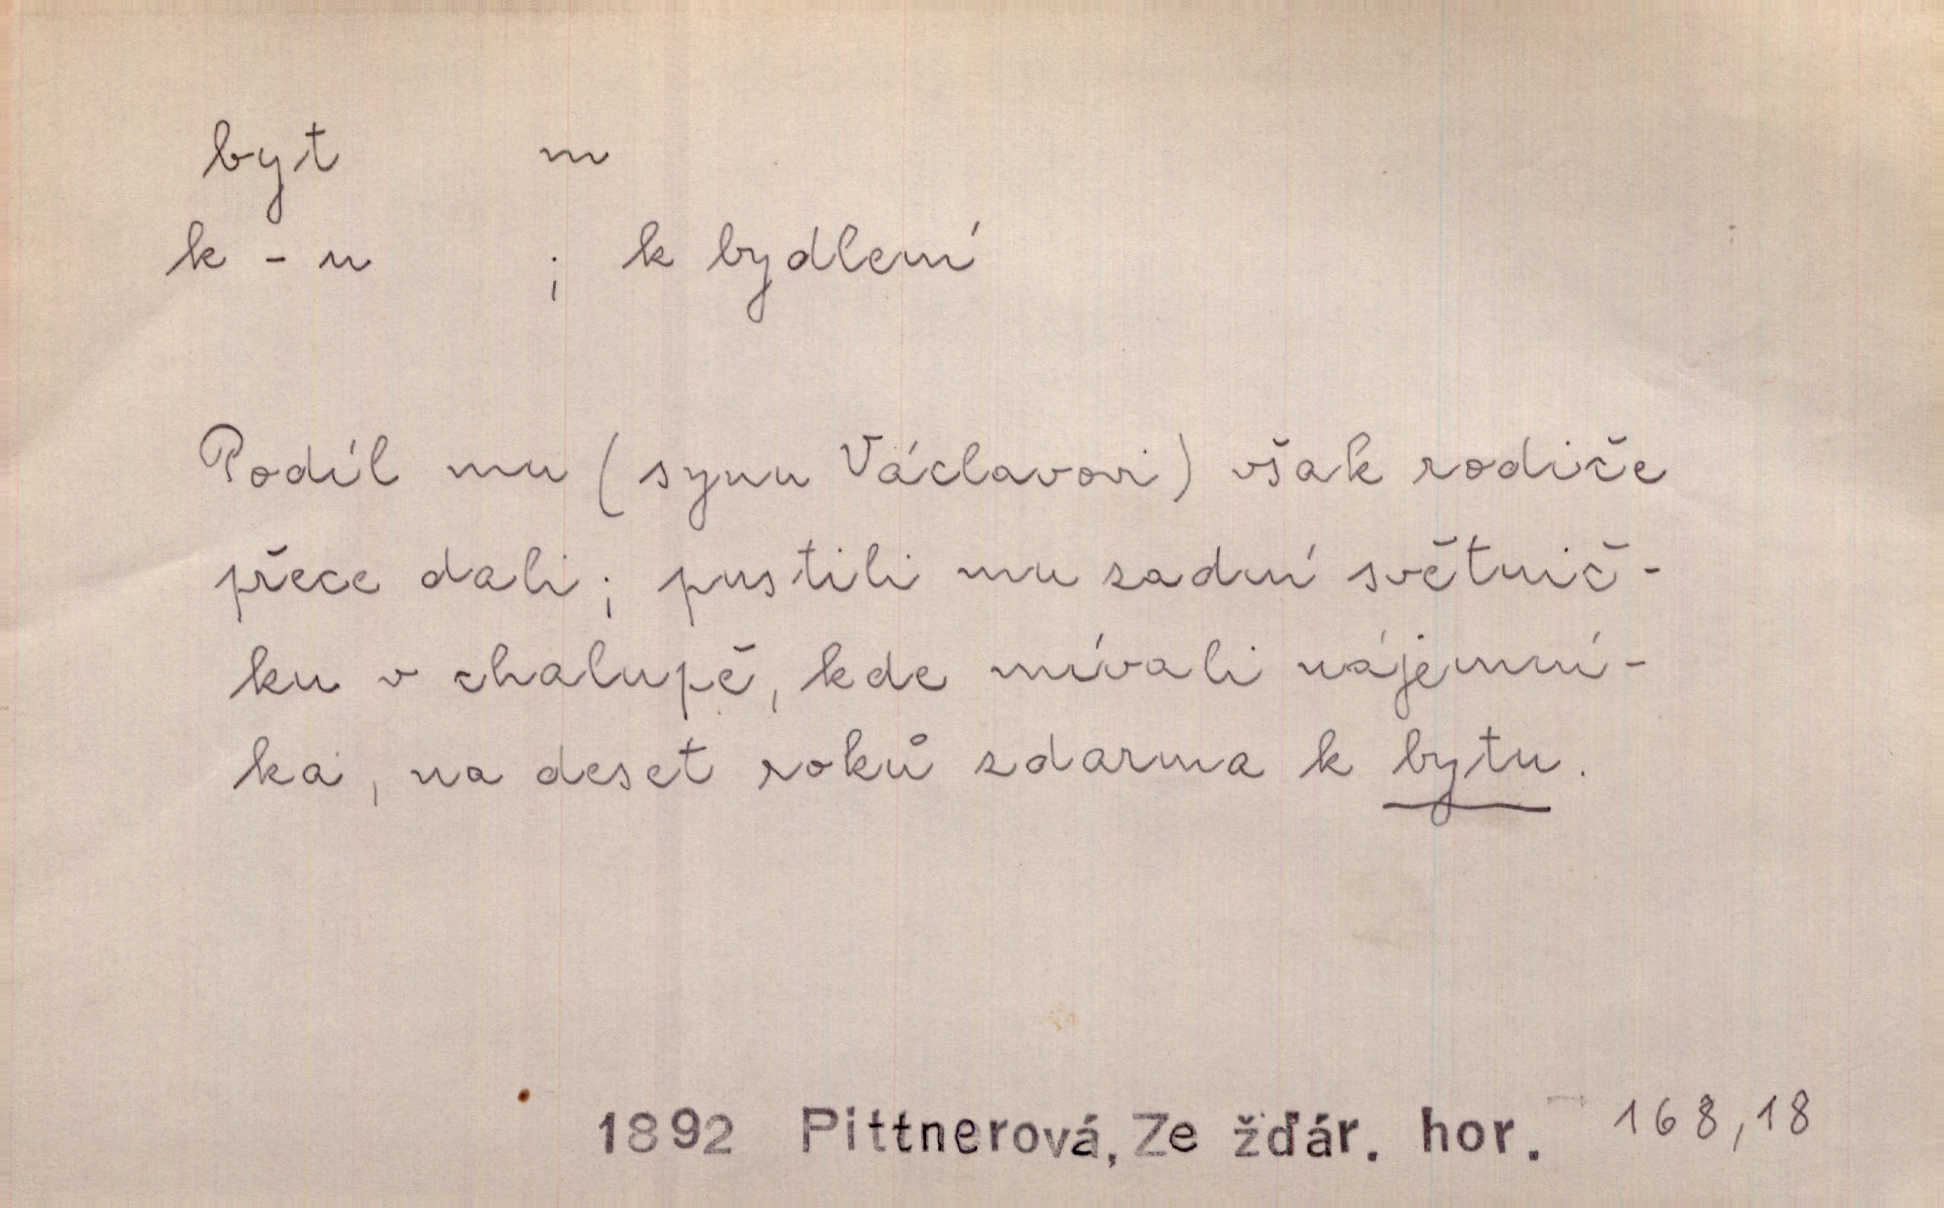 byt m
k - u ; k bydlení
Podíl mu (synu Václavovi) však rodiče
přece dali; pustili mu zadní světnič-
ku v chalupě, kde mívali nájemní-
ka, na deset roků zdarma k bytu.
1892 Pittnerová, Ze žďár. hor. 168,18